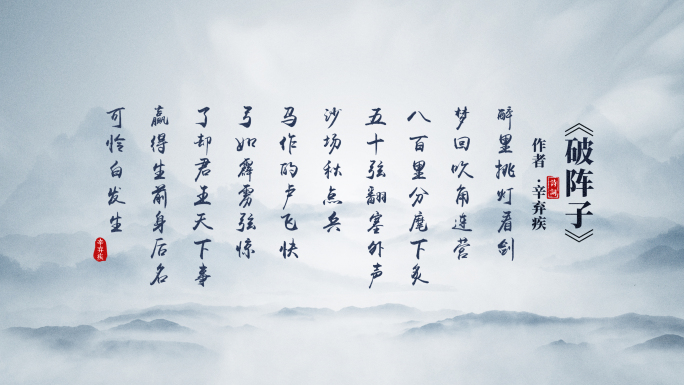 《破阵子》
作者·辛弃疾
诗词
醉里挑灯看剑
梦回吹角连营
八百里分麾下炙
五十弦翻塞外声
沙场秋点兵
马作的卢飞快
弓如霹雳弦惊
了却君王天下事
赢得生前身后名
可怜白发生
辛弃疾